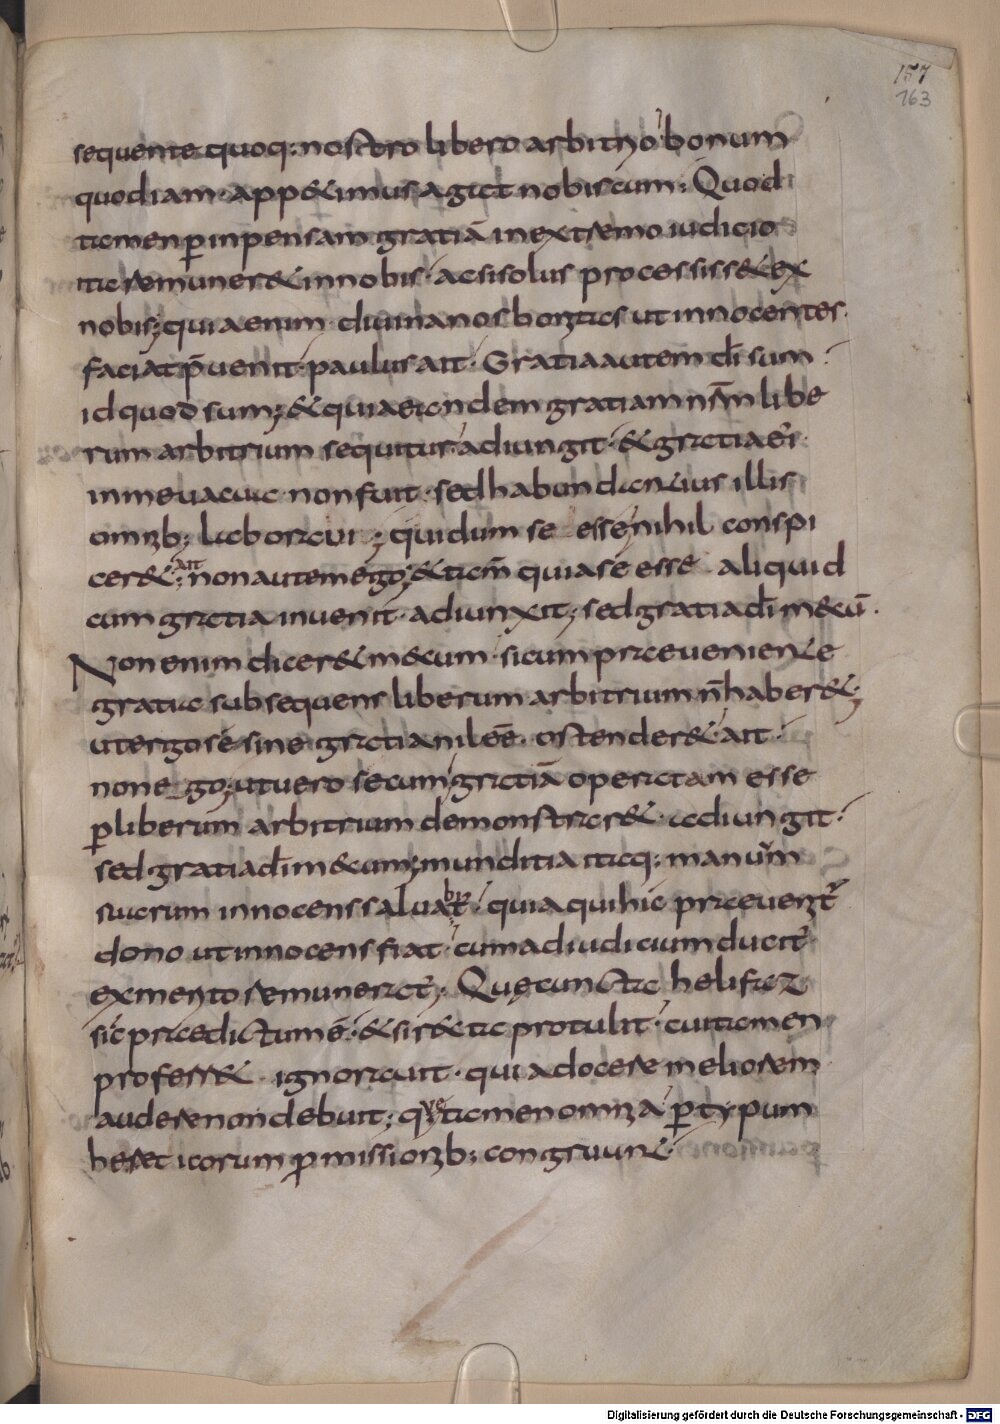 157
163
sequente quoq; nostro libero arbitrio bonum
quod iam app&imus agat nobiscum; Quod
tamen p inpensam gratiā in extremo iudicio
ita remuner& in nobis· ac si solus processiss& ex
nobis; quia enim divina nos bonitas ut innocentes·
faciat p̄venit· paulus ait· Gratia autem dī sum
id quod sum; & quia eandem gratiam nr̄m libe
rum arbitrium sequitur adiungit· & gratia ei'
in me vacua non fuit· sed habundantius illis
omnib; laboravi; qui dum se esse nihil conspi
cer& ait; non autem ego; & tam̄ quia se esse aliquid
cum gratia invenit· adiunxit; sed gratia dī mecū·
Non enim dicer& mecum· si cum praeveniente
gratia subsequens liberum arbitrium n̄ haber&;
ut ergo se sine gratia nil eē· ostender& ait·
non ego; ut vero se cum gratiā operatam esse
p liberum arbitrium demonstrar& adiungit·
sed gratia dī mecum; munditia itaq; manuum
suarum innocens salvabit'· quia qui hic praevenit'
dono ut innocens fiat· cum ad iudicium ducit'
ex merito remunerat'; Quę cuncta helifaz
sic praedictum ē· & si r&ta protulit· cui tamen
proferr& ignoravit· quia docere meliorem
audere non debuit; quę tamen omnia p typum
her&icorum p missionib; congruunt·
Digitalisierung gefördert durch die Deutsche Forschungsgemeinschaft - DFG